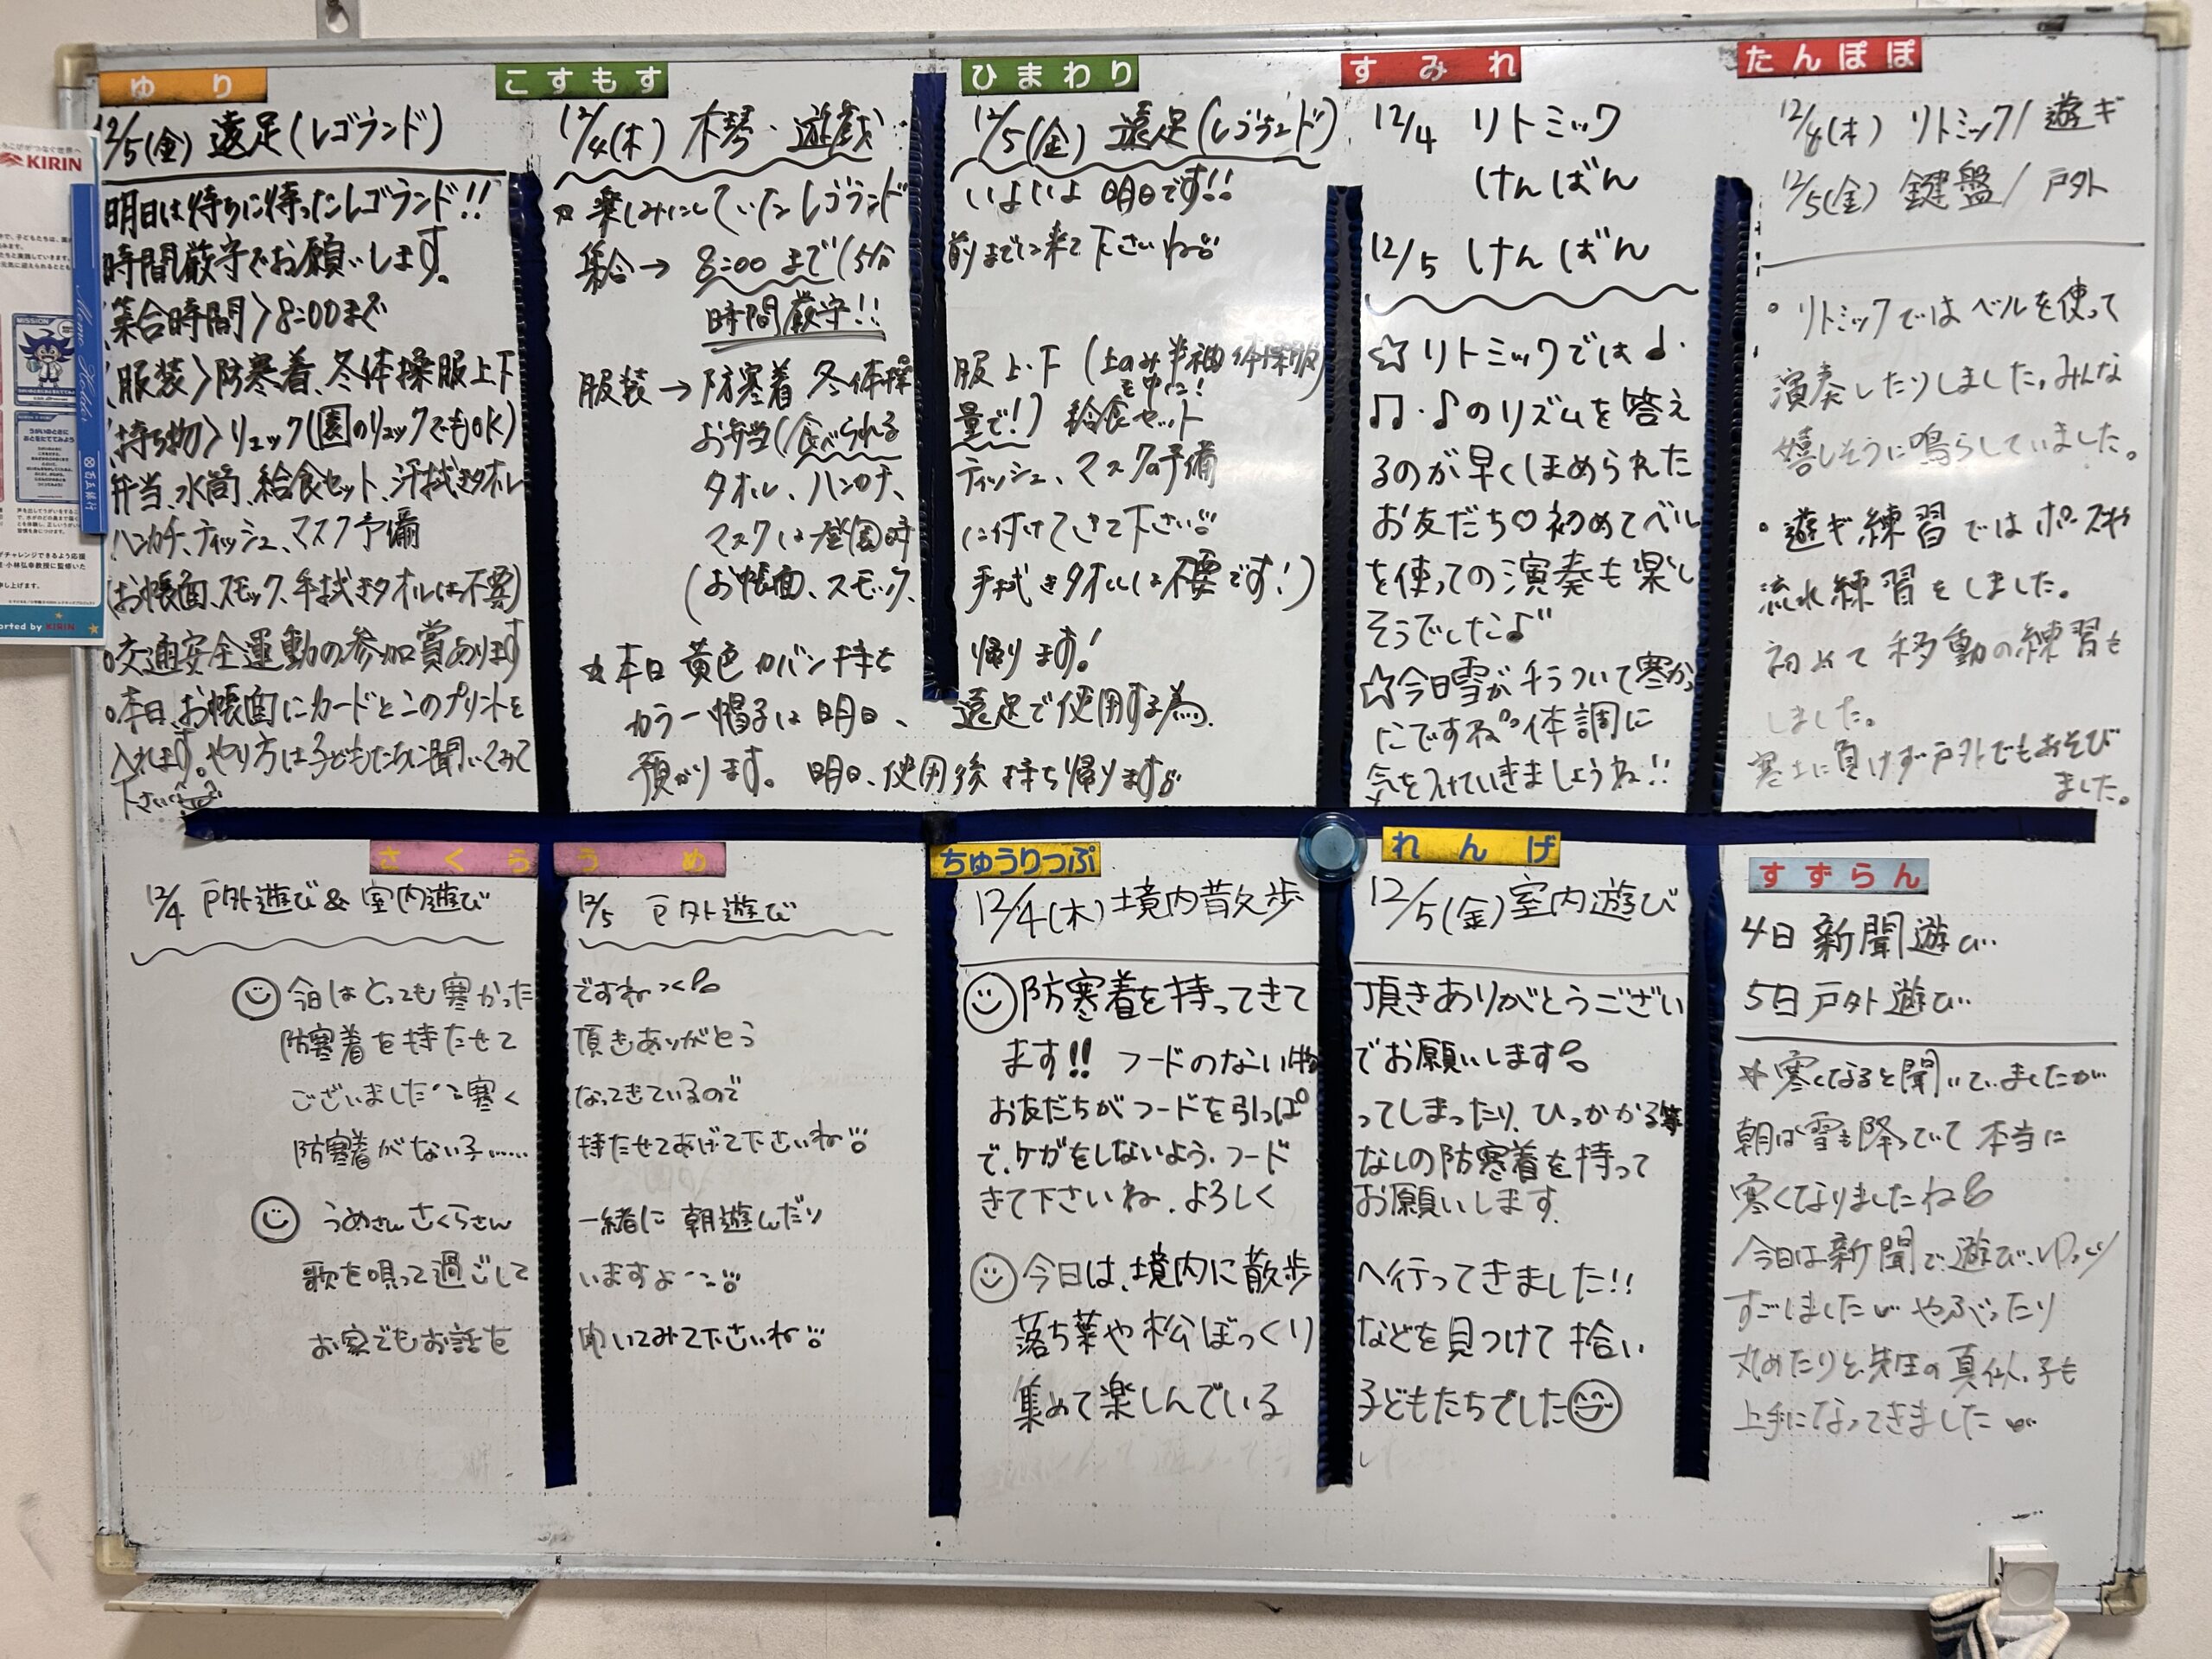 ゆり
12/5(金) 遠足(レゴランド)
明日は待ちに待ったレゴランド!!
時間厳守でお願いします。
〈集合時間〉8:00まで
〈服装〉防寒着、冬体操服上下
〈持ち物〉リュック(園のリュックでもOK)
弁当、水筒、給食セット、汗拭きタオル
ハンカチ、ティッシュ、マスク予備
(お帳面、スモック、手拭きタオルは不要)
○交通安全運動の参加賞あります
○本日、お帳面にカードとこのプリントを
入れます。やり方は子どもたちに聞いてみて
下さい
こすもす ひまわり
12/4(木) 木琴・遊戯 12/5(金) 遠足(レゴランド)
☆楽しみにしていたレゴランド いよいよ 明日です!!
集合→ 8:00まで(5分 前までに来て下さいね
時間厳守!!
服装→防寒着 冬体操 服上・下 (上のみ半袖体操服
を中に!
お弁当(食べられる 量で!) 給食セット
タオル、ハンカチ、 ティッシュ、マスクの予備
マスクは登園時 に付けてきて下さい
(お帳面、スモック、 手拭きタオルは不要です!)
☆本日 黄色カバン持ち 帰ります!
カラー帽子は明日、 遠足で使用する為、
預かります。明日、使用後 持ち帰ります
すみれ
12/4 リトミック
けんばん
12/5 けんばん
☆リトミックでは♩・
♫・♪のリズムを答え
るのが早くほめられた
お友だち♡初めてベル
を使っての演奏も楽し
そうでした♪
☆今日雪がチラついて寒かっ
たですね 体調に
気をつけていきましょうね!!
たんぽぽ
12/4(木) リトミック/遊ギ
12/5(金) 鍵盤/戸外
○リトミックではベルを使って
演奏したりしました。みんな
嬉しそうに鳴らしていました。
○遊ギ練習ではポーズや
流れ練習をしました。
初めて移動の練習も
しました。
寒さに負けず戸外でもあそび
ました。
さくら うめ
12/4 戸外遊び&室内遊び 12/5 戸外遊び
今日はとっても寒かった ですね
防寒着を持たせて 頂きありがとう
ございました 寒く なってきているので
防寒着がない子…… 持たせてあげて下さいね
うめさん さくらさん 一緒に 朝遊んだり
歌を唄って過ごして いますよ
お家でもお話を 聞いてみて下さいね
ちゅうりっぷ れんげ
12/4(木)境内散歩 12/5(金)室内遊び
防寒着を持ってきて 頂きありがとうござい
ます!! フードのない物 でお願いします
お友だちがフードを引っぱ ってしまったり、ひっかかる等
で、ケガをしないよう、フード なしの防寒着を持って
きて下さいね。よろしく お願いします。
今日は、境内に散歩 へ行ってきました!!
落ち葉や松ぼっくり などを見つけて拾い
集めて楽しんでいる 子どもたちでした
すずらん
4日 新聞遊び
5日 戸外遊び
☆寒くなると聞いていましたが
朝は雪も降っていて本当に
寒くなりましたね
今日は新聞で遊び、ゆっくり
すごしました やぶったり
丸めたりと、先生の真似っ子も
上手になってきました
KIRIN
MISSION
Supported by KIRIN